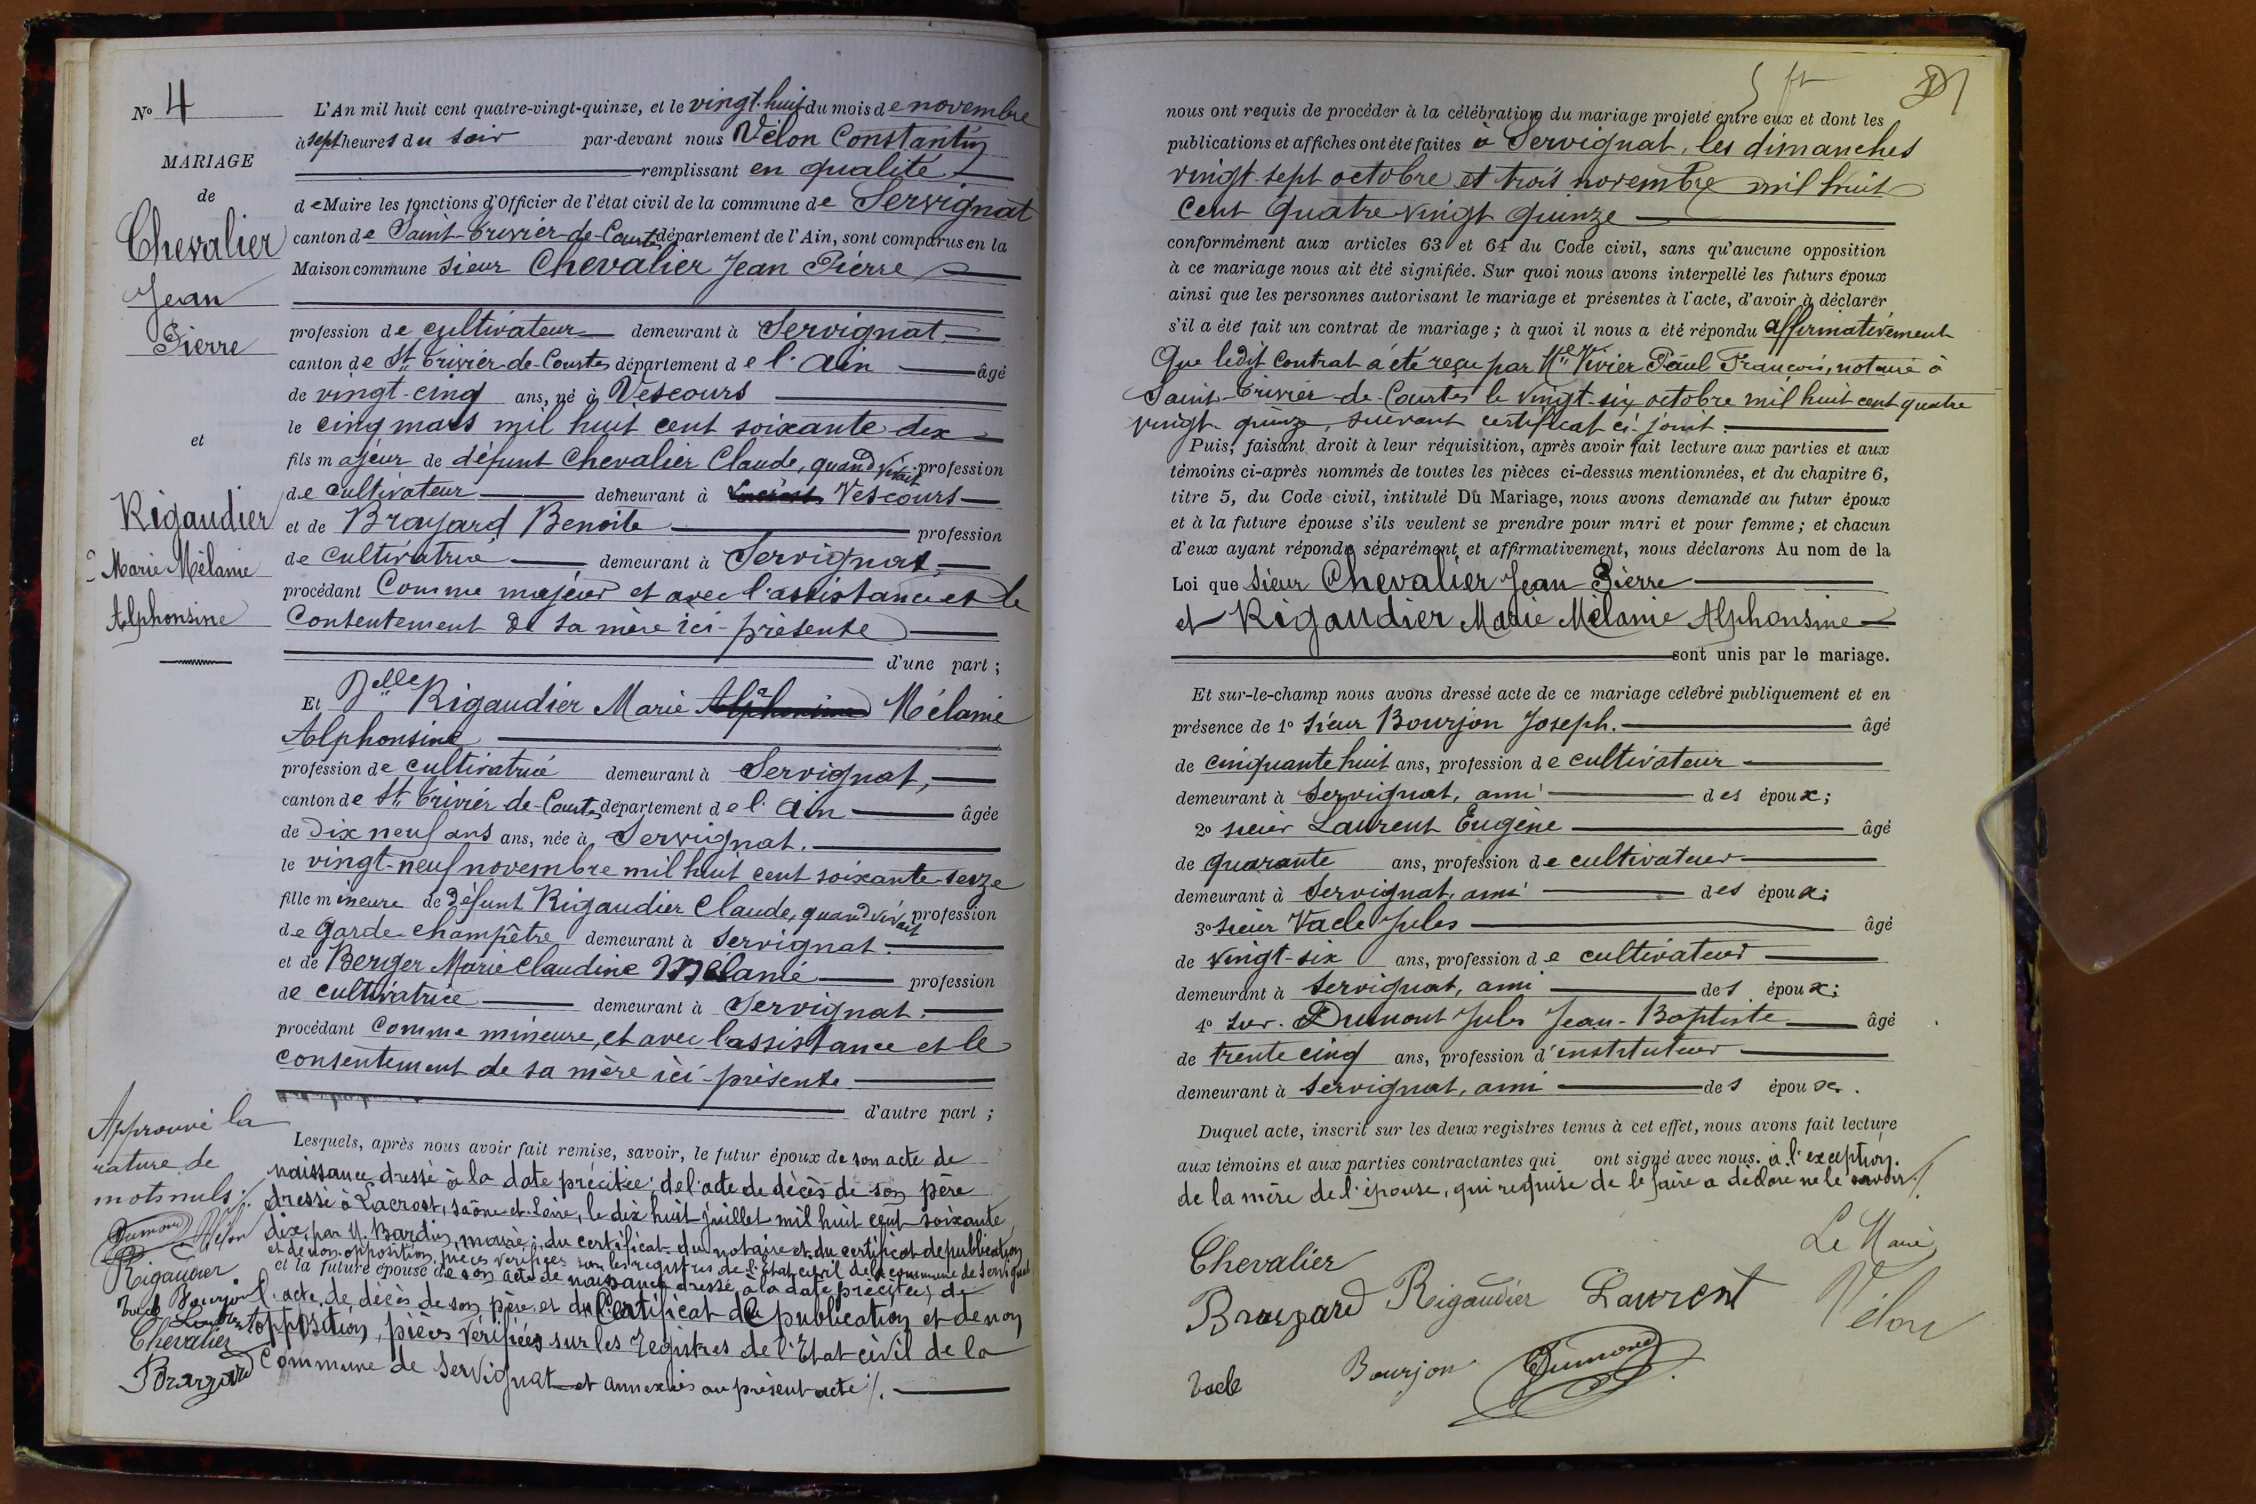 No 4
MARIAGE
de
Chevalier
Jean
Pierre
et
Rigaudier
Marie Mélanie
Alphonsine
L'An mil huit cent quatre-vingt-quinze, et le vingt-huit du mois de novembre
à sept heures du soir par-devant nous Vélon Constantin
remplissant en qualité
de Maire les fonctions d'Officier de l'état civil de la commune de Servignat
canton de Saint-Trivier-de-Courtes département de l'Ain, sont comparus en la
Maison commune sieur Chevalier Jean Pierre
profession de cultivateur demeurant à Servignat
canton de St Trivier-de-Courtes département de l'Ain âgé
de vingt-cinq ans, né à Vescours
le cinq mars mil huit cent soixante-dix
fils majeur de défunt Chevalier Claude, quand vivait profession
de cultivateur demeurant à Vescours
et de Brayard Benoite profession
de cultivatrice demeurant à Servignat,
procédant Comme majeur et avec l'assistance et le
Consentement de sa mère ici-présente
d'une part ;
Et Delle Rigaudier Marie Alphonsine Mélanie
Alphonsine
profession de cultivatrice demeurant à Servignat,
canton de St Trivier-de-Courtes département de l'Ain âgée
de Dix neuf ans ans, née à Servignat.
le vingt-neuf novembre mil huit cent soixante-seize
fille mineure de défunt Rigaudier Claude, quand vivait profession
de Garde-champêtre demeurant à Servignat.
et de Berger Marie Claudine Mélanie profession
de cultivatrice demeurant à Servignat.
procédant comme mineure, et avec l'assistance et le
consentement de sa mère ici-présente
d'autre part ;
Lesquels, après nous avoir fait remise, savoir, le futur époux de son acte de
naissance dressé à la date précitée de l'acte de décès de son père
dressé à Lacrost, Saône-et-Loire, le dix huit juillet mil huit cent soixante
dix, par M. Bardin, maire ; du certificat du notaire et du certificat de publication
et de non-opposition, pièces vérifiées sur les registres de l'état civil de la commune de Servignat
et la future épouse de son acte de naissance dressé à la date précitée, de
l'acte de décès de son père et du Certificat de publication et de non
opposition, pièces vérifiées sur les registres de l'Etat civil de la
Commune de Servignat et annexées au présent acte /.
Approuvé la
rature de
mots nuls /.
Dumont Vélon
Rigaudier
Vacle Bourjon
Laurent
Chevalier
Brayard
nous ont requis de procéder à la célébration du mariage projeté entre eux et dont les
publications et affiches ont été faites à Servignat, les dimanches
vingt-sept octobre et trois novembre mil huit
cent quatre vingt quinze
conformément aux articles 63 et 64 du Code civil, sans qu'aucune opposition
à ce mariage nous ait été signifiée. Sur quoi nous avons interpellé les futurs époux
ainsi que les personnes autorisant le mariage et présentes à l'acte, d'avoir à déclarer
s'il a été fait un contrat de mariage ; à quoi il nous a été répondu affirmativement
Que ledit contrat a été reçu par Me Vivier Paul François, notaire à
Saint-Trivier-de-Courtes le vingt-six octobre mil huit cent quatre
vingt quinze, suivant certificat ci-joint.
Puis, faisant droit à leur réquisition, après avoir fait lecture aux parties et aux
témoins ci-après nommés de toutes les pièces ci-dessus mentionnées, et du chapitre 6,
titre 5, du Code civil, intitulé Du Mariage, nous avons demandé au futur époux
et à la future épouse s'ils veulent se prendre pour mari et pour femme ; et chacun
d'eux ayant répondu séparément et affirmativement, nous déclarons Au nom de la
Loi que sieur Chevalier Jean Pierre
et Rigaudier Marie Mélanie Alphonsine
sont unis par le mariage.
Et sur-le-champ nous avons dressé acte de ce mariage célébré publiquement et en
présence de 1o sieur Bourjon Joseph. âgé
de cinquante huit ans, profession de cultivateur
demeurant à Servignat, ami des époux ;
2o sieur Laurent Eugène âgé
de quarante ans, profession de cultivateur
demeurant à Servignat, ami des époux ;
3o sieur Vacle Jules âgé
de vingt-six ans, profession de cultivateur
demeurant à Servignat, ami des époux ;
4o sieur Dumont Jules Jean-Baptiste âgé
de trente cinq ans, profession d'instituteur
demeurant à Servignat, ami des époux.
Duquel acte, inscrit sur les deux registres tenus à cet effet, nous avons fait lecture
aux témoins et aux parties contractantes qui ont signé avec nous. à l'exception
de la mère de l'épouse, qui requise de le faire a déclaré ne le savoir /.
Le Maire
Chevalier
Brayard Rigaudier Laurent Vélon
Vacle Bourjon Dumont